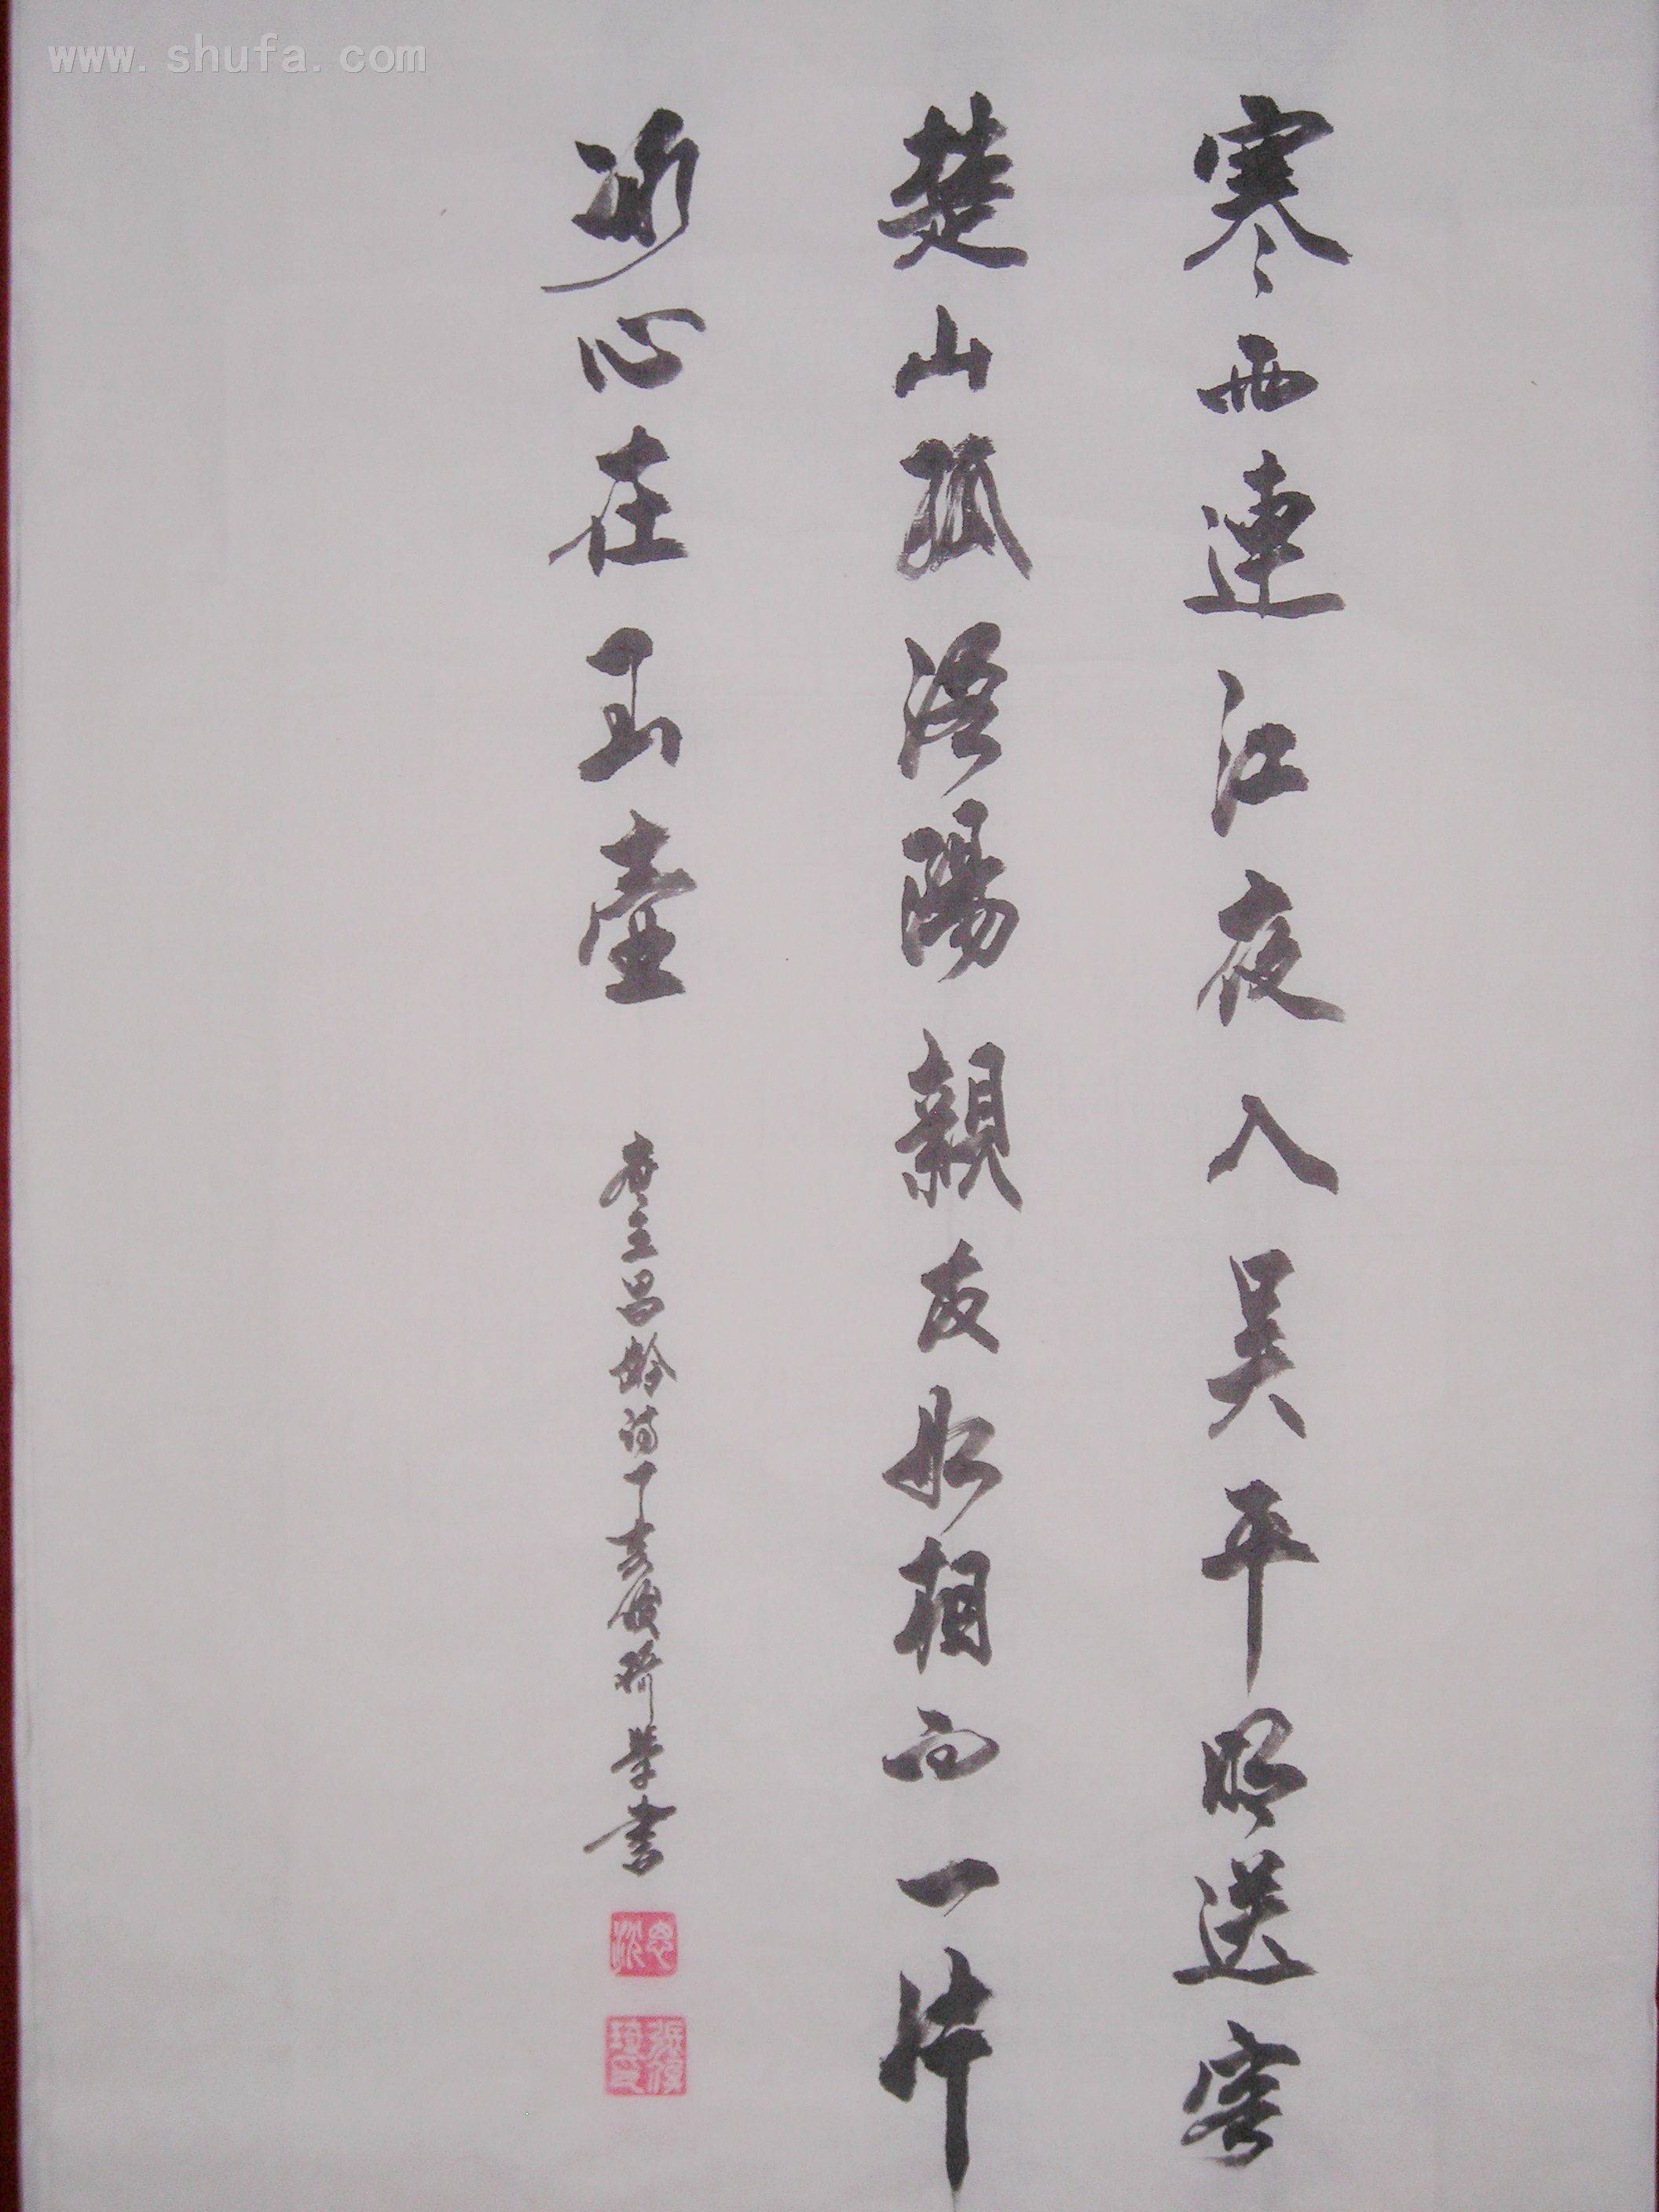 www.shufa.com
寒雨連江夜入吴平明送客
楚山孤洛陽親友如相問一片
冰心在玉壺
唐王昌齡詩丁亥俊書